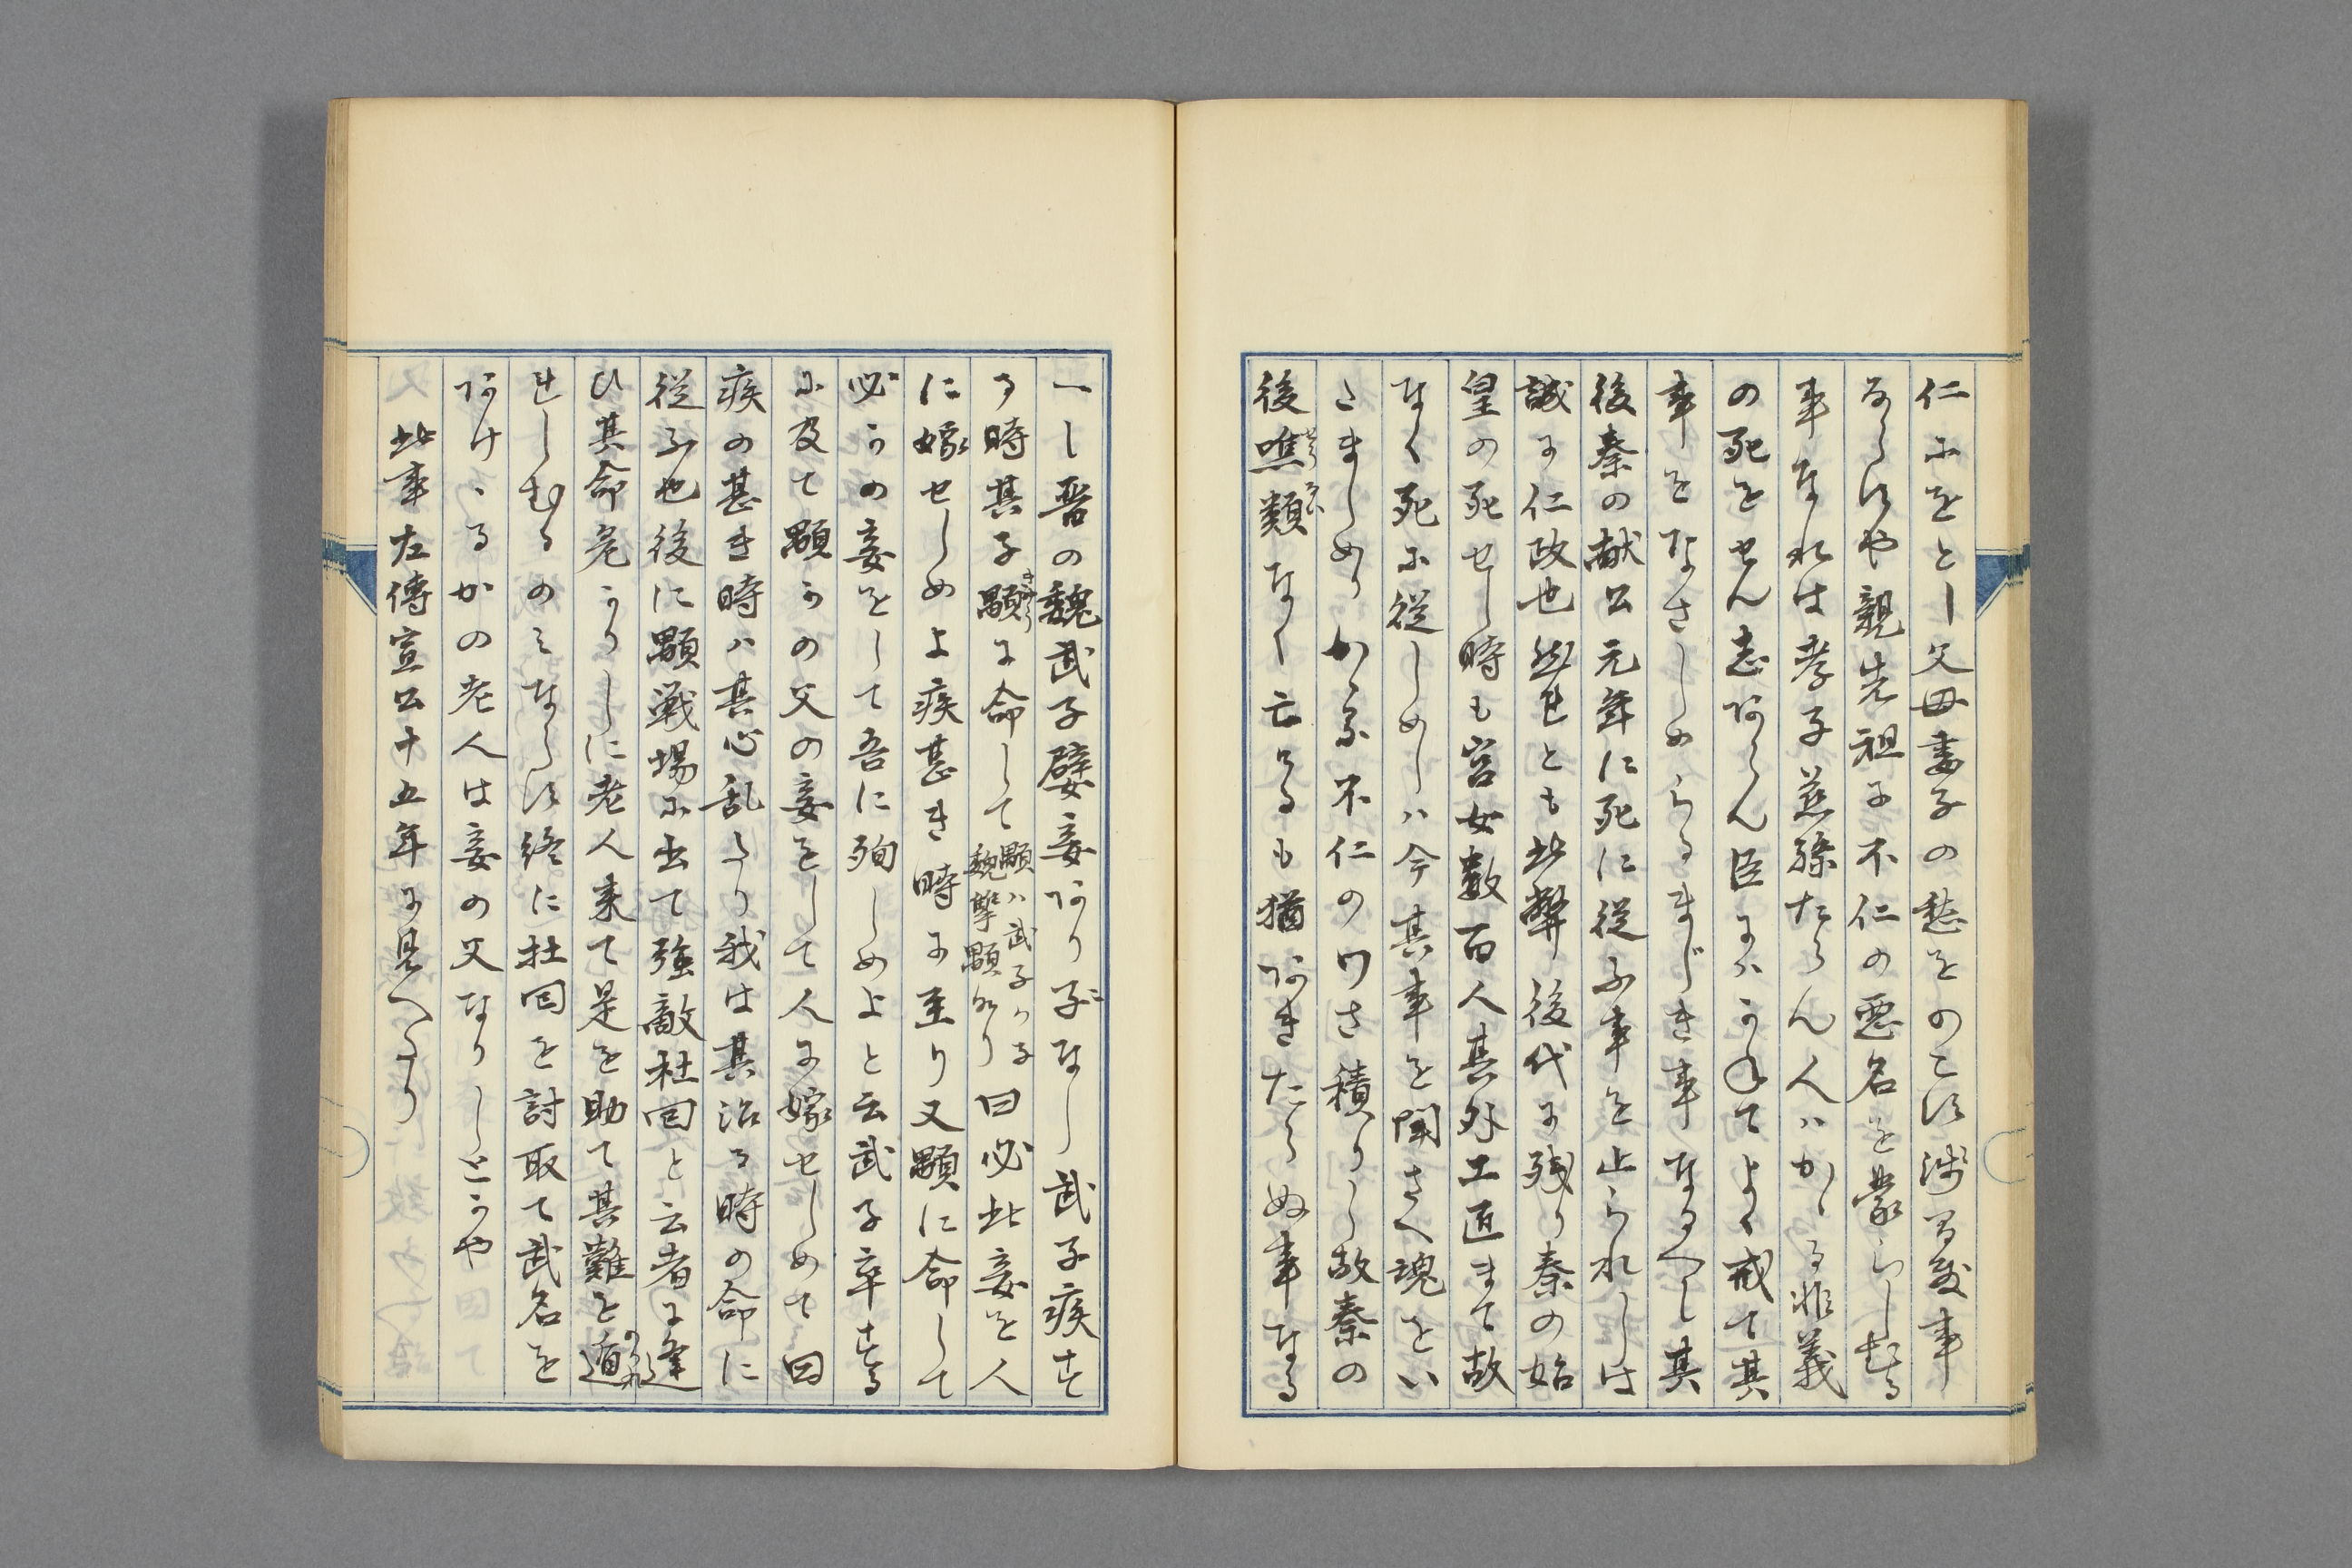 仁にをとし父母妻子の愁をのこす
ならすや親先祖に不仁の悪名を蒙らしむる
事なれは孝子慈孫たらん人ハかゝる非義
の死をせん志あらん臣にハかねてよく戒て其
事をなさしめらるまじき事なるへし其
後秦の献公元年に死に従ふ事を止られしは
誠に仁政也然れとも此弊後代に残り秦の始
皇の死せし時も宮女数百人其外工匠まて故
なく死に従しめしハ今其事を聞さへ魂をい
たましめりかゝる不仁のワさ積りし故秦の
後噍類なく亡ひるも猶あきたらぬ事なる
一し晋の魏武子嬖妾あり子なし武子疾す
る時其子顆に命して顆ハ武子の子魏犨顆なり曰必此妾を人
に嫁せしめよ疾甚き時に至り又顆に命して
必かの妾をして吾に殉しめよと云武子卒する
に及て顆かの父の妾をして人に嫁せしめて曰
疾の甚き時ハ其心乱たり我は其治る時の命に
従ふ也後に顆戦場に出て強敵杜回と云者に逢
ひ其命危かりしに老人来て是を助て其難を遁
れしむるのみならす終に杜回を討取て武名を
あけゝるかの老人は妾の父なりしとかや
此事左傳宣公十五年に見へたり